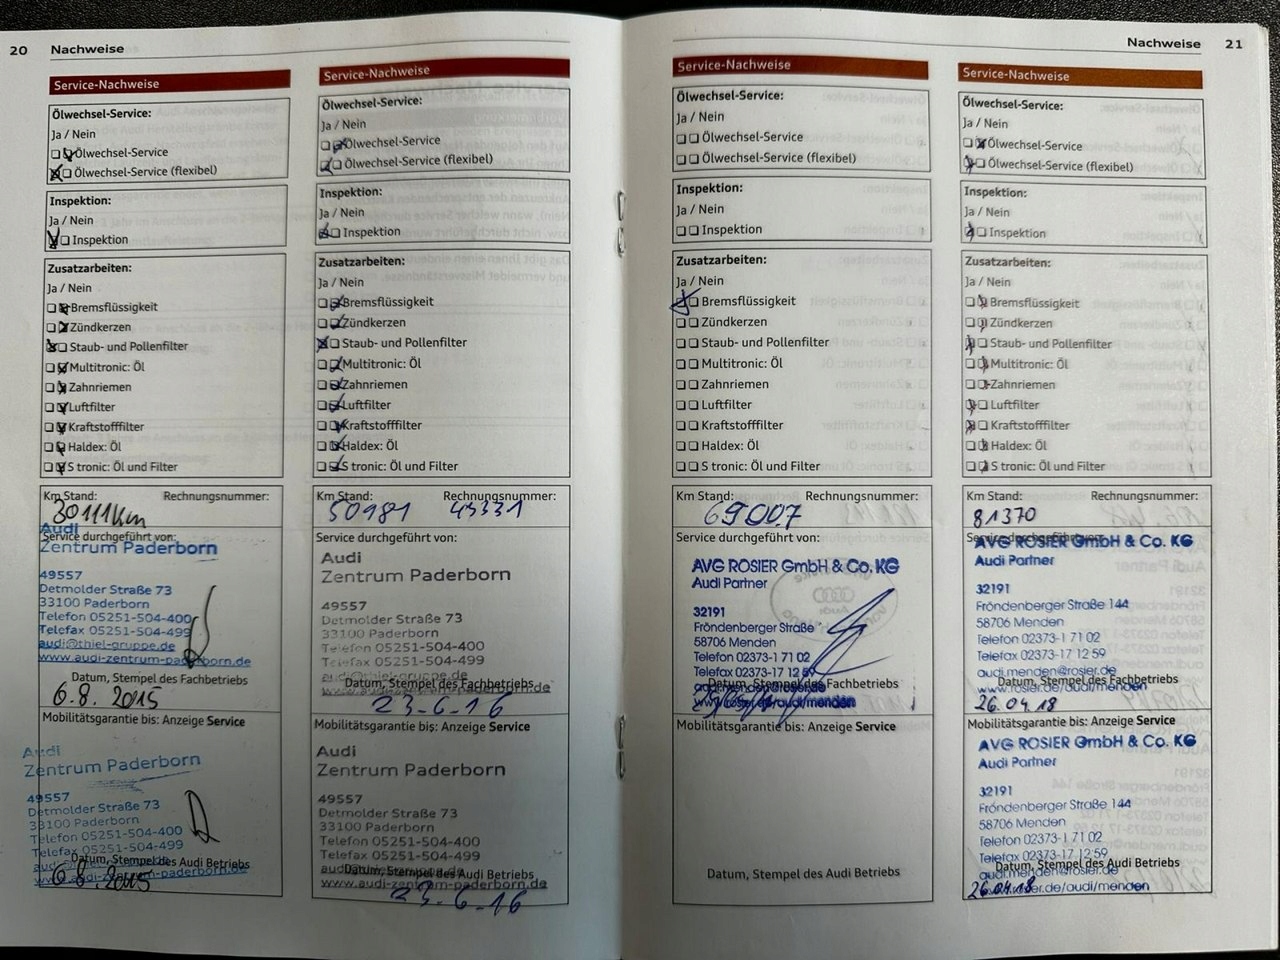 20 Nachweise
Service-Nachweise
Ölwechsel-Service:
Ja / Nein
Ölwechsel-Service
Ölwechsel-Service (flexibel)
Inspektion:
Ja / Nein
Inspektion
Zusatzarbeiten:
Ja / Nein
Bremsflüssigkeit
Zündkerzen
Staub- und Pollenfilter
Multitronic: Öl
Zahnriemen
Luftfilter
Kraftstofffilter
Haldex: Öl
S tronic: Öl und Filter
Km Stand: Rechnungsnummer:
30111Km
Service durchgeführt von:
Audi
Zentrum Paderborn
49557
Detmolder Straße 73
33100 Paderborn
Telefon 05251-504-400
Telefax 05251-504-499
audi@thiel-gruppe.de
www.audi-zentrum-paderborn.de
Datum, Stempel des Fachbetriebs
6.8.2015
Mobilitätsgarantie bis: Anzeige Service
Audi
Zentrum Paderborn
49557
Detmolder Straße 73
33100 Paderborn
Telefon 05251-504-400
Telefax 05251-504-499
www.audi-zentrum-paderborn.de
Datum, Stempel des Audi Betriebs
6.8.2015
Service-Nachweise
Ölwechsel-Service:
Ja / Nein
Ölwechsel-Service
Ölwechsel-Service (flexibel)
Inspektion:
Ja / Nein
Inspektion
Zusatzarbeiten:
Ja / Nein
Bremsflüssigkeit
Zündkerzen
Staub- und Pollenfilter
Multitronic: Öl
Zahnriemen
Luftfilter
Kraftstofffilter
Haldex: Öl
S tronic: Öl und Filter
Km Stand: Rechnungsnummer:
50981 45331
Service durchgeführt von:
Audi
Zentrum Paderborn
49557
Detmolder Straße 73
33100 Paderborn
Telefon 05251-504-400
Telefax 05251-504-499
www.audi-zentrum-paderborn.de
Datum, Stempel des Fachbetriebs
23.6.16
Mobilitätsgarantie bis: Anzeige Service
Audi
Zentrum Paderborn
49557
Detmolder Straße 73
33100 Paderborn
Telefon 05251-504-400
Telefax 05251-504-499
www.audi-zentrum-paderborn.de
Datum, Stempel des Audi Betriebs
23.6.16
Nachweise 21
Service-Nachweise
Ölwechsel-Service:
Ja / Nein
Ölwechsel-Service
Ölwechsel-Service (flexibel)
Inspektion:
Ja / Nein
Inspektion
Zusatzarbeiten:
Ja / Nein
Bremsflüssigkeit
Zündkerzen
Staub- und Pollenfilter
Multitronic: Öl
Zahnriemen
Luftfilter
Kraftstofffilter
Haldex: Öl
S tronic: Öl und Filter
Km Stand: Rechnungsnummer:
69007
Service durchgeführt von:
AVG ROSIER GmbH & Co. KG
Audi Partner
32191
Fröndenberger Straße
58706 Menden
Telefon 02373-1 71 02
Telefax 02373-17 12 59
audi.menden@rosier.de
www.rosier.de/audi/menden
Datum, Stempel des Fachbetriebs
Mobilitätsgarantie bis: Anzeige Service
Datum, Stempel des Audi Betriebs
Service-Nachweise
Ölwechsel-Service:
Ja / Nein
Ölwechsel-Service
Ölwechsel-Service (flexibel)
Inspektion:
Ja / Nein
Inspektion
Zusatzarbeiten:
Ja / Nein
Bremsflüssigkeit
Zündkerzen
Staub- und Pollenfilter
Multitronic: Öl
Zahnriemen
Luftfilter
Kraftstofffilter
Haldex: Öl
S tronic: Öl und Filter
Km Stand: Rechnungsnummer:
81370
Service durchgeführt von:
AVG ROSIER GmbH & Co. KG
Audi Partner
32191
Fröndenberger Straße 144
58706 Menden
Telefon 02373-1 71 02
Telefax 02373-17 12 59
audi.menden@rosier.de
www.rosier.de/audi/menden
Datum, Stempel des Fachbetriebs
26.04.18
Mobilitätsgarantie bis: Anzeige Service
AVG ROSIER GmbH & Co. KG
Audi Partner
32191
Fröndenberger Straße 144
58706 Menden
Telefon 02373-1 71 02
Telefax 02373-17 12 59
audi.menden@rosier.de
Datum, Stempel des Audi Betriebs
www.rosier.de/audi/menden
26.04.18